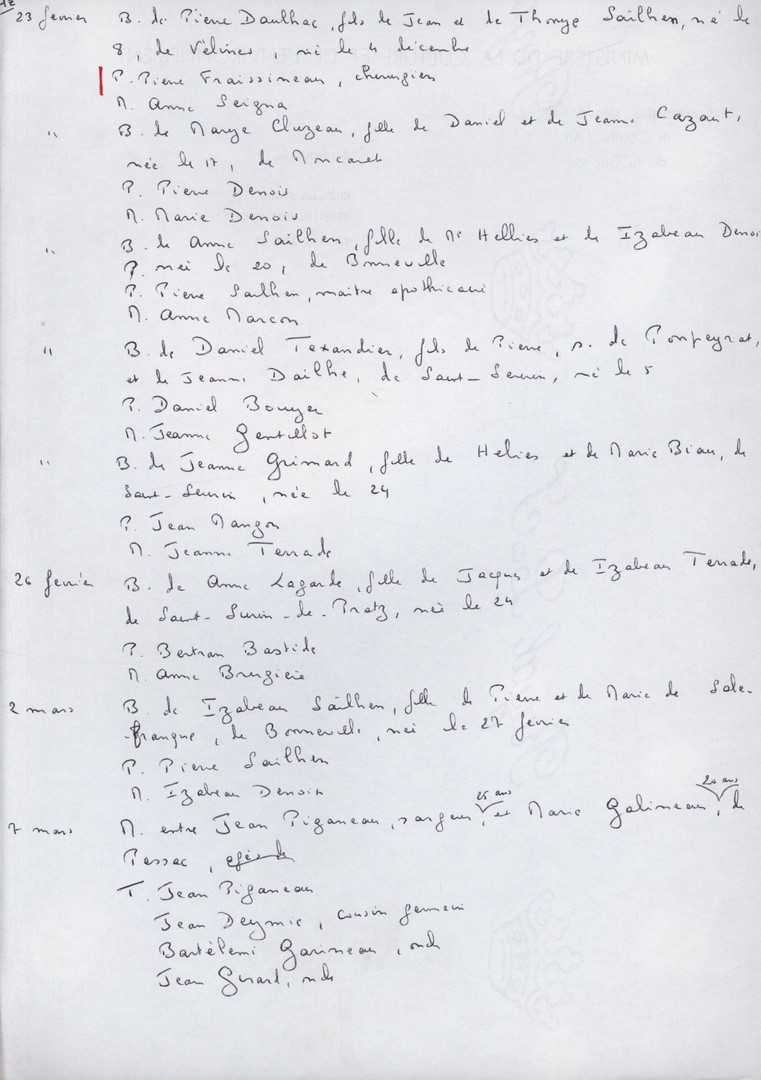 23 février B. de Pierre Daulhac, fils de Jean et de Thonye Sailhen, né le
8, de Vélines, né le 4 décembre
P. Pierre Fraissineau, chirurgien
M. Anne Seigna
" B. de Marye Cluzeau, fille de Daniel et de Jeanne Cazaut,
née le 17, de Moncaret
P. Pierre Denois
M. Marie Denois
" B. de Anne Sailhen, fille de Me Hellies et de Izabeau Denoi
P. née le 20, de Bonneville
P. Pierre Sailhen, maitre apothicaire
M. Anne Marcon
" B. de Daniel Texandier, fils de Pierre, s. de Ponpeyrat,
et de Jeanne Dailhe, de Saint-Seurin, né le 5
P. Daniel Bouyer
M. Jeanne Gentillot
" B. de Jeanne Grimard, fille de Helies et de Marie Biau, de
Saint-Seurin, née le 24
P. Jean Mangon
M. Jeanne Terrade
26 février B. de Anne Lagarde, fille de Jacques et de Izabeau Terrade,
de Saint-Surin-de-Pratz, née le 24
P. Bertran Bastide
M. Anne Brugiere
2 mars B. de Izabeau Sailhen, fille de Pierre et de Marie de Sale-
franque, de Bonneville, née le 27 février
P. Pierre Sailhen
M. Izabeau Denois
25 ans 20 ans
7 mars M. entre Jean Piganeau, sargeur, et Marie Galineau, de
Pessac,
T. Jean Piganeau
Jean Deymie, cousin germain
Bartélemi Garineau, oncle
Jean Girard, oncle